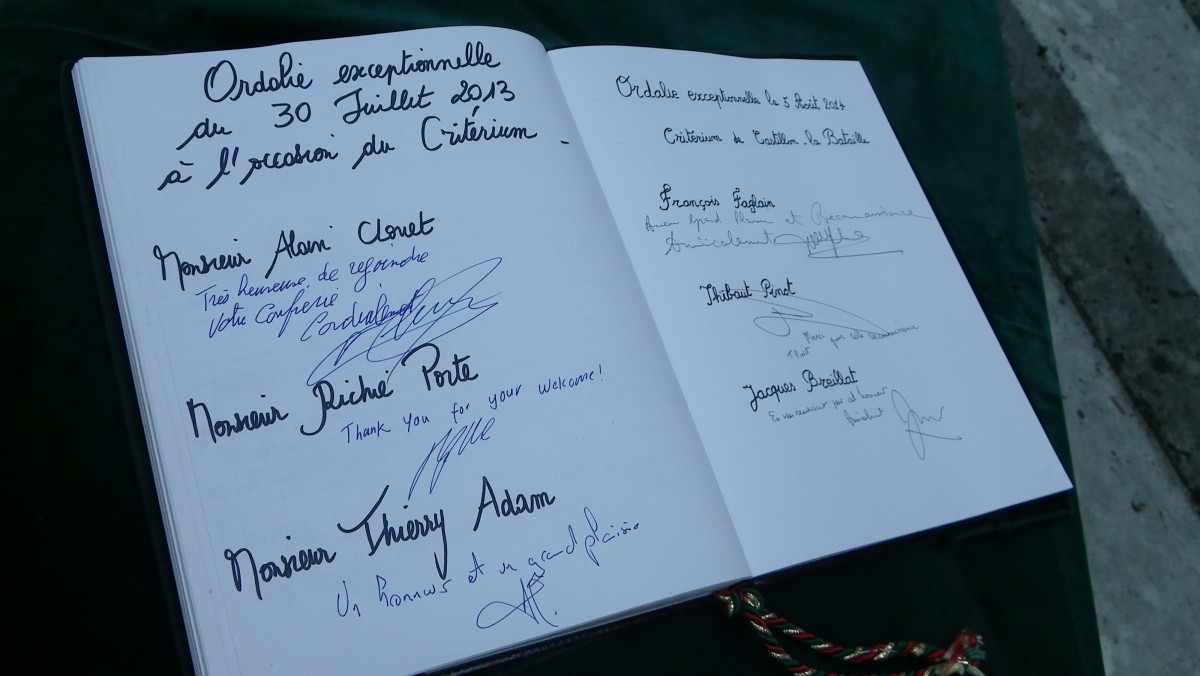 Ordalie exceptionnelle
du 30 Juillet 2013
à l'occasion du Critérium.
Monsieur Alain Clouet
Très heureuse de rejoindre
Votre Confrérie
Cordialement
Monsieur Richie Porte
Thank you for your welcome!
Monsieur Thierry Adam
Un honneur et un grand plaisir
Ordalie exceptionnelle le 5 Août 2014
Critérium de Castillon-la Bataille
François Faglain
Avec Grand Plaisir et Reconnaissance
Amicalement
Thibaut Pinot
Merci pour cette reconnaissance
Jacques Breillat
En vous remerciant pour cet honneur
Président